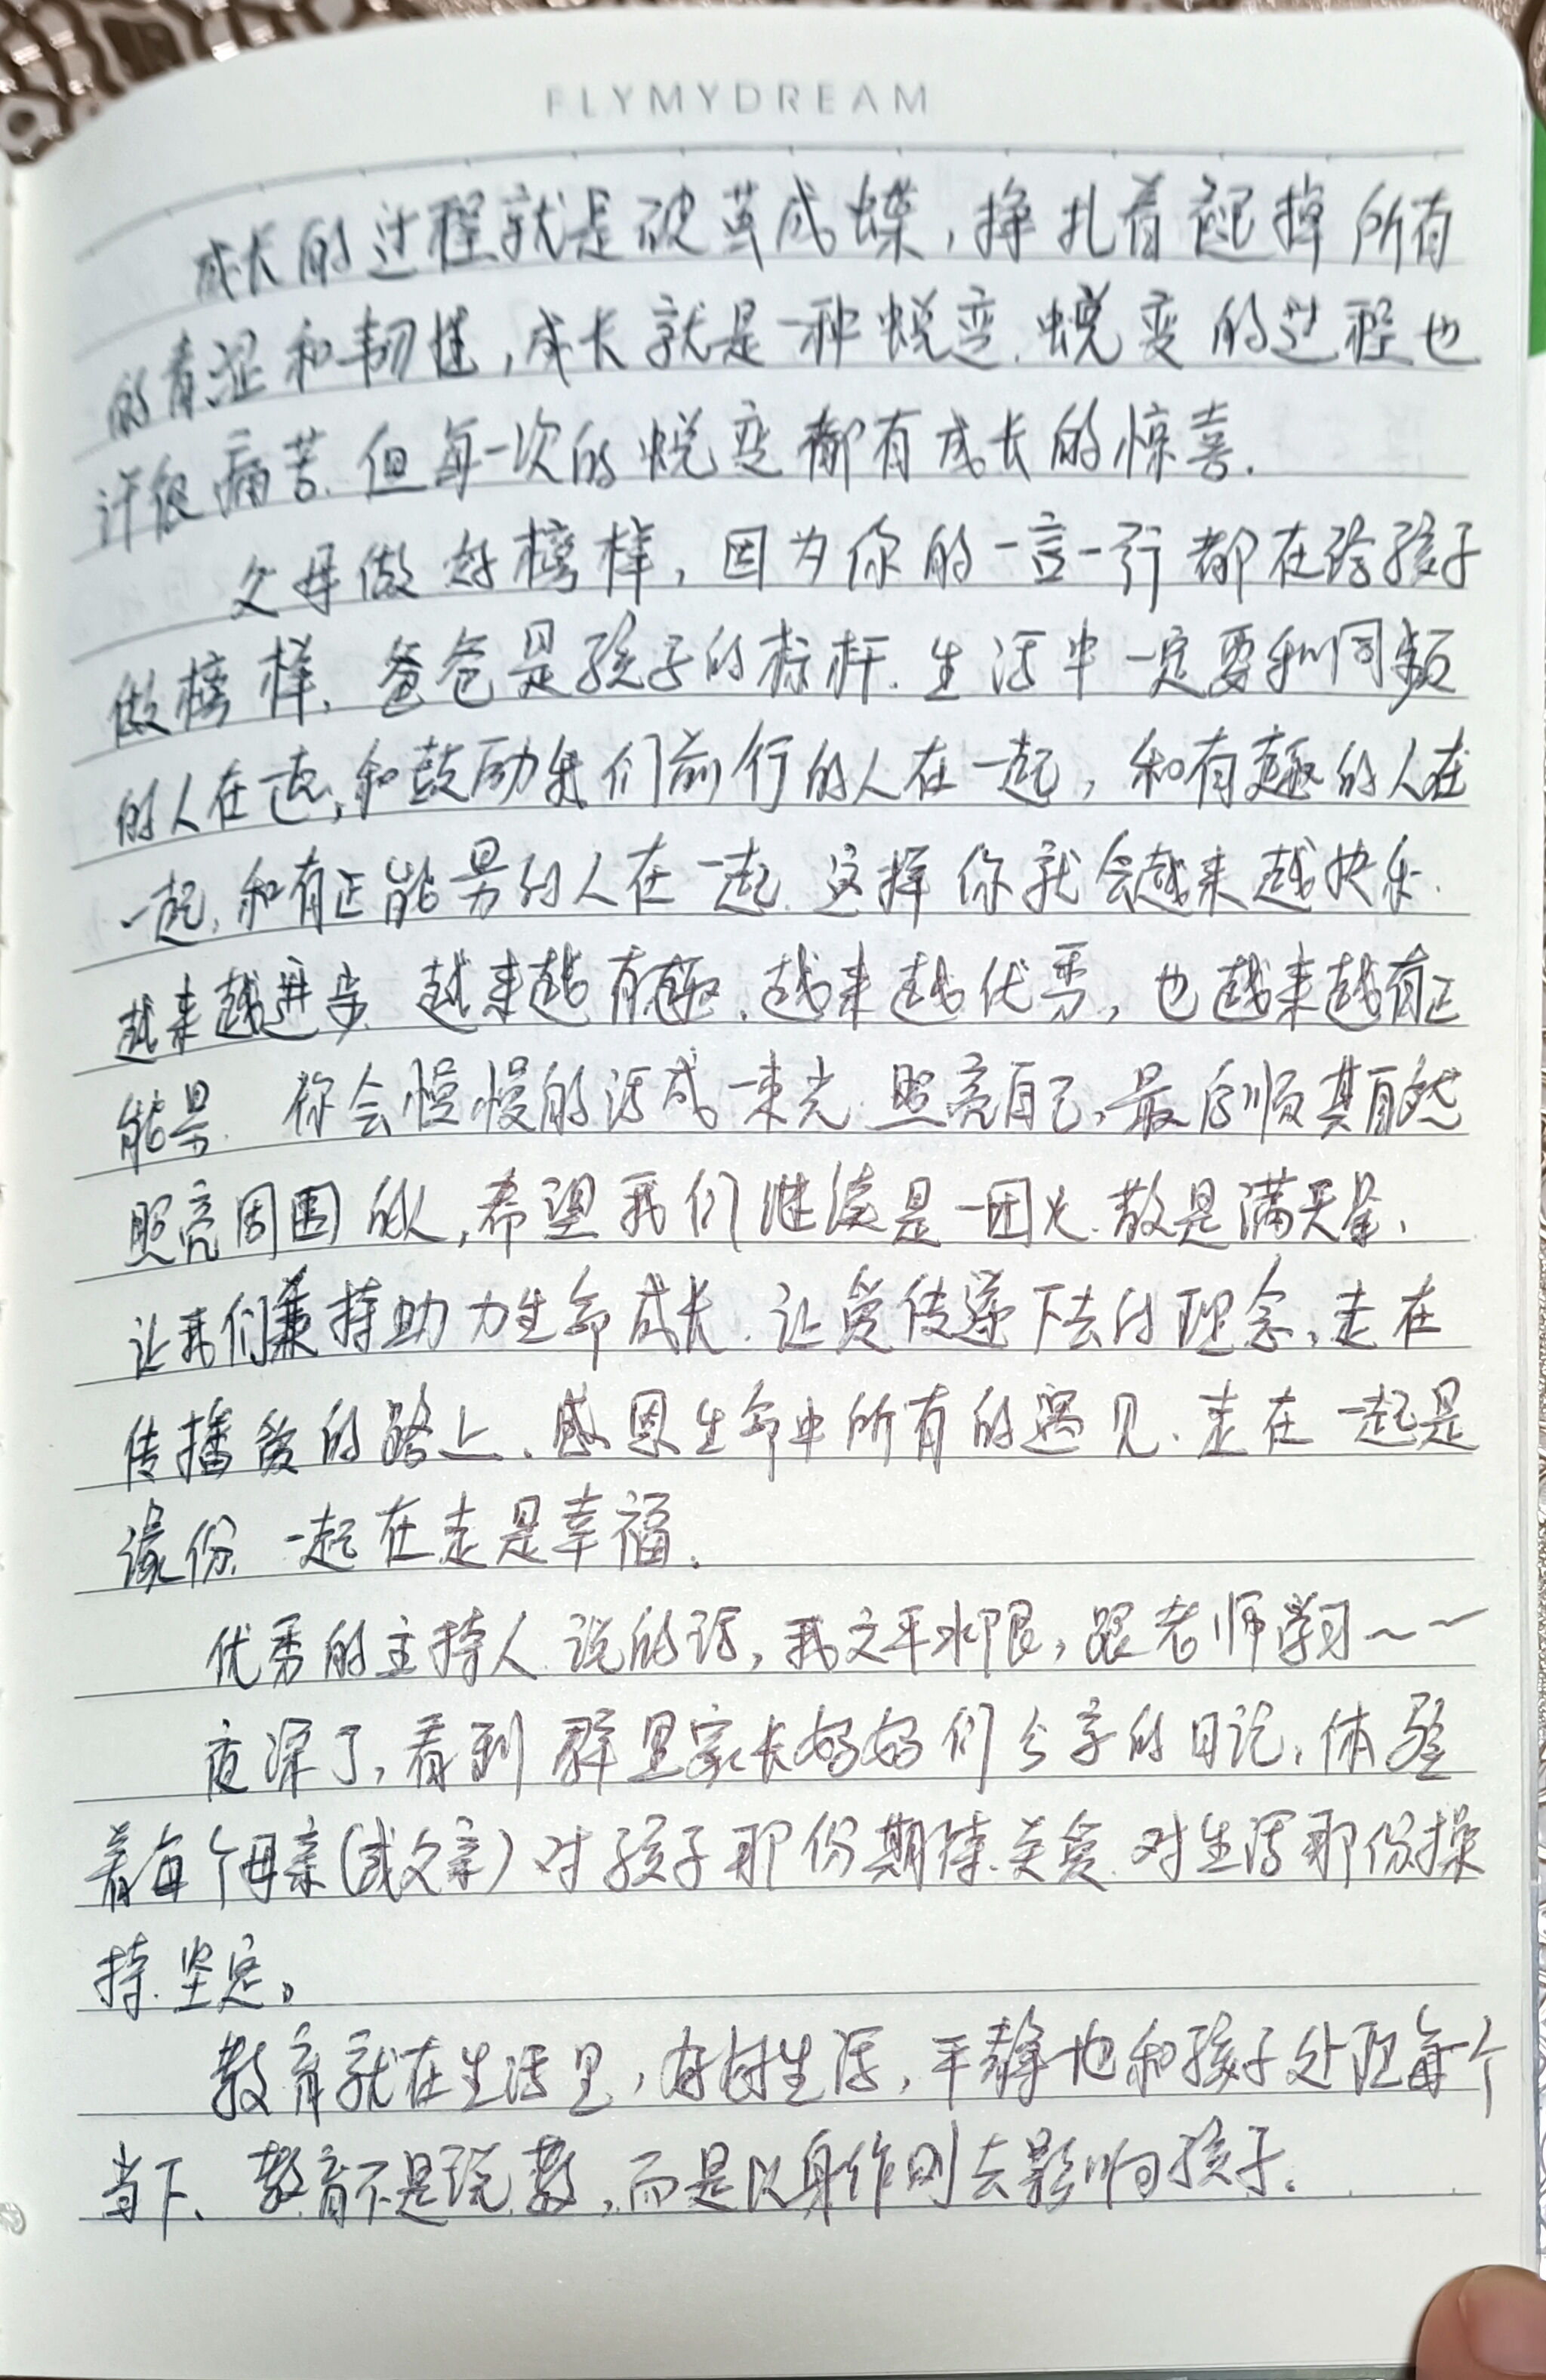 FLYMYDREAM
成长的过程就是破茧成蝶,挣扎着褪掉所有
的青涩和韧性,成长就是一种蜕变.蜕变的过程也
许很痛苦.但每一次的蜕变都有成长的惊喜.
父母做好榜样,因为你的一言一行都在给孩子
做榜样.爸爸是孩子的标杆.生活中一定要和同频
的人在一起,和鼓励我们前行的人在一起,和有趣的人在
一起,和有正能量的人在一起.这样你就会越来越快乐.
越来越进步.越来越有趣.越来越优秀,也越来越有正
能量.你会慢慢的活成一束光.照亮自己,最后顺其自然
照亮周围的人,希望我们继续是一团火.散是满天星.
让我们秉持助力生命成长.让爱传递下去的理念,走在
传播爱的路上.感恩生命中所有的遇见.走在一起是
缘份.一起在走是幸福.
优秀的主持人说的话,我文平水限,跟老师学习~~
夜深了,看到群里家长妈妈们分享的日记,体验
着每个母亲(或父亲)对孩子那份期待.关爱.对生活那份操
持.坚定。
教育就在生活里,好好生活,平静地和孩子处理每一个
当下、教育不是说教,而是以身作则去影响孩子。